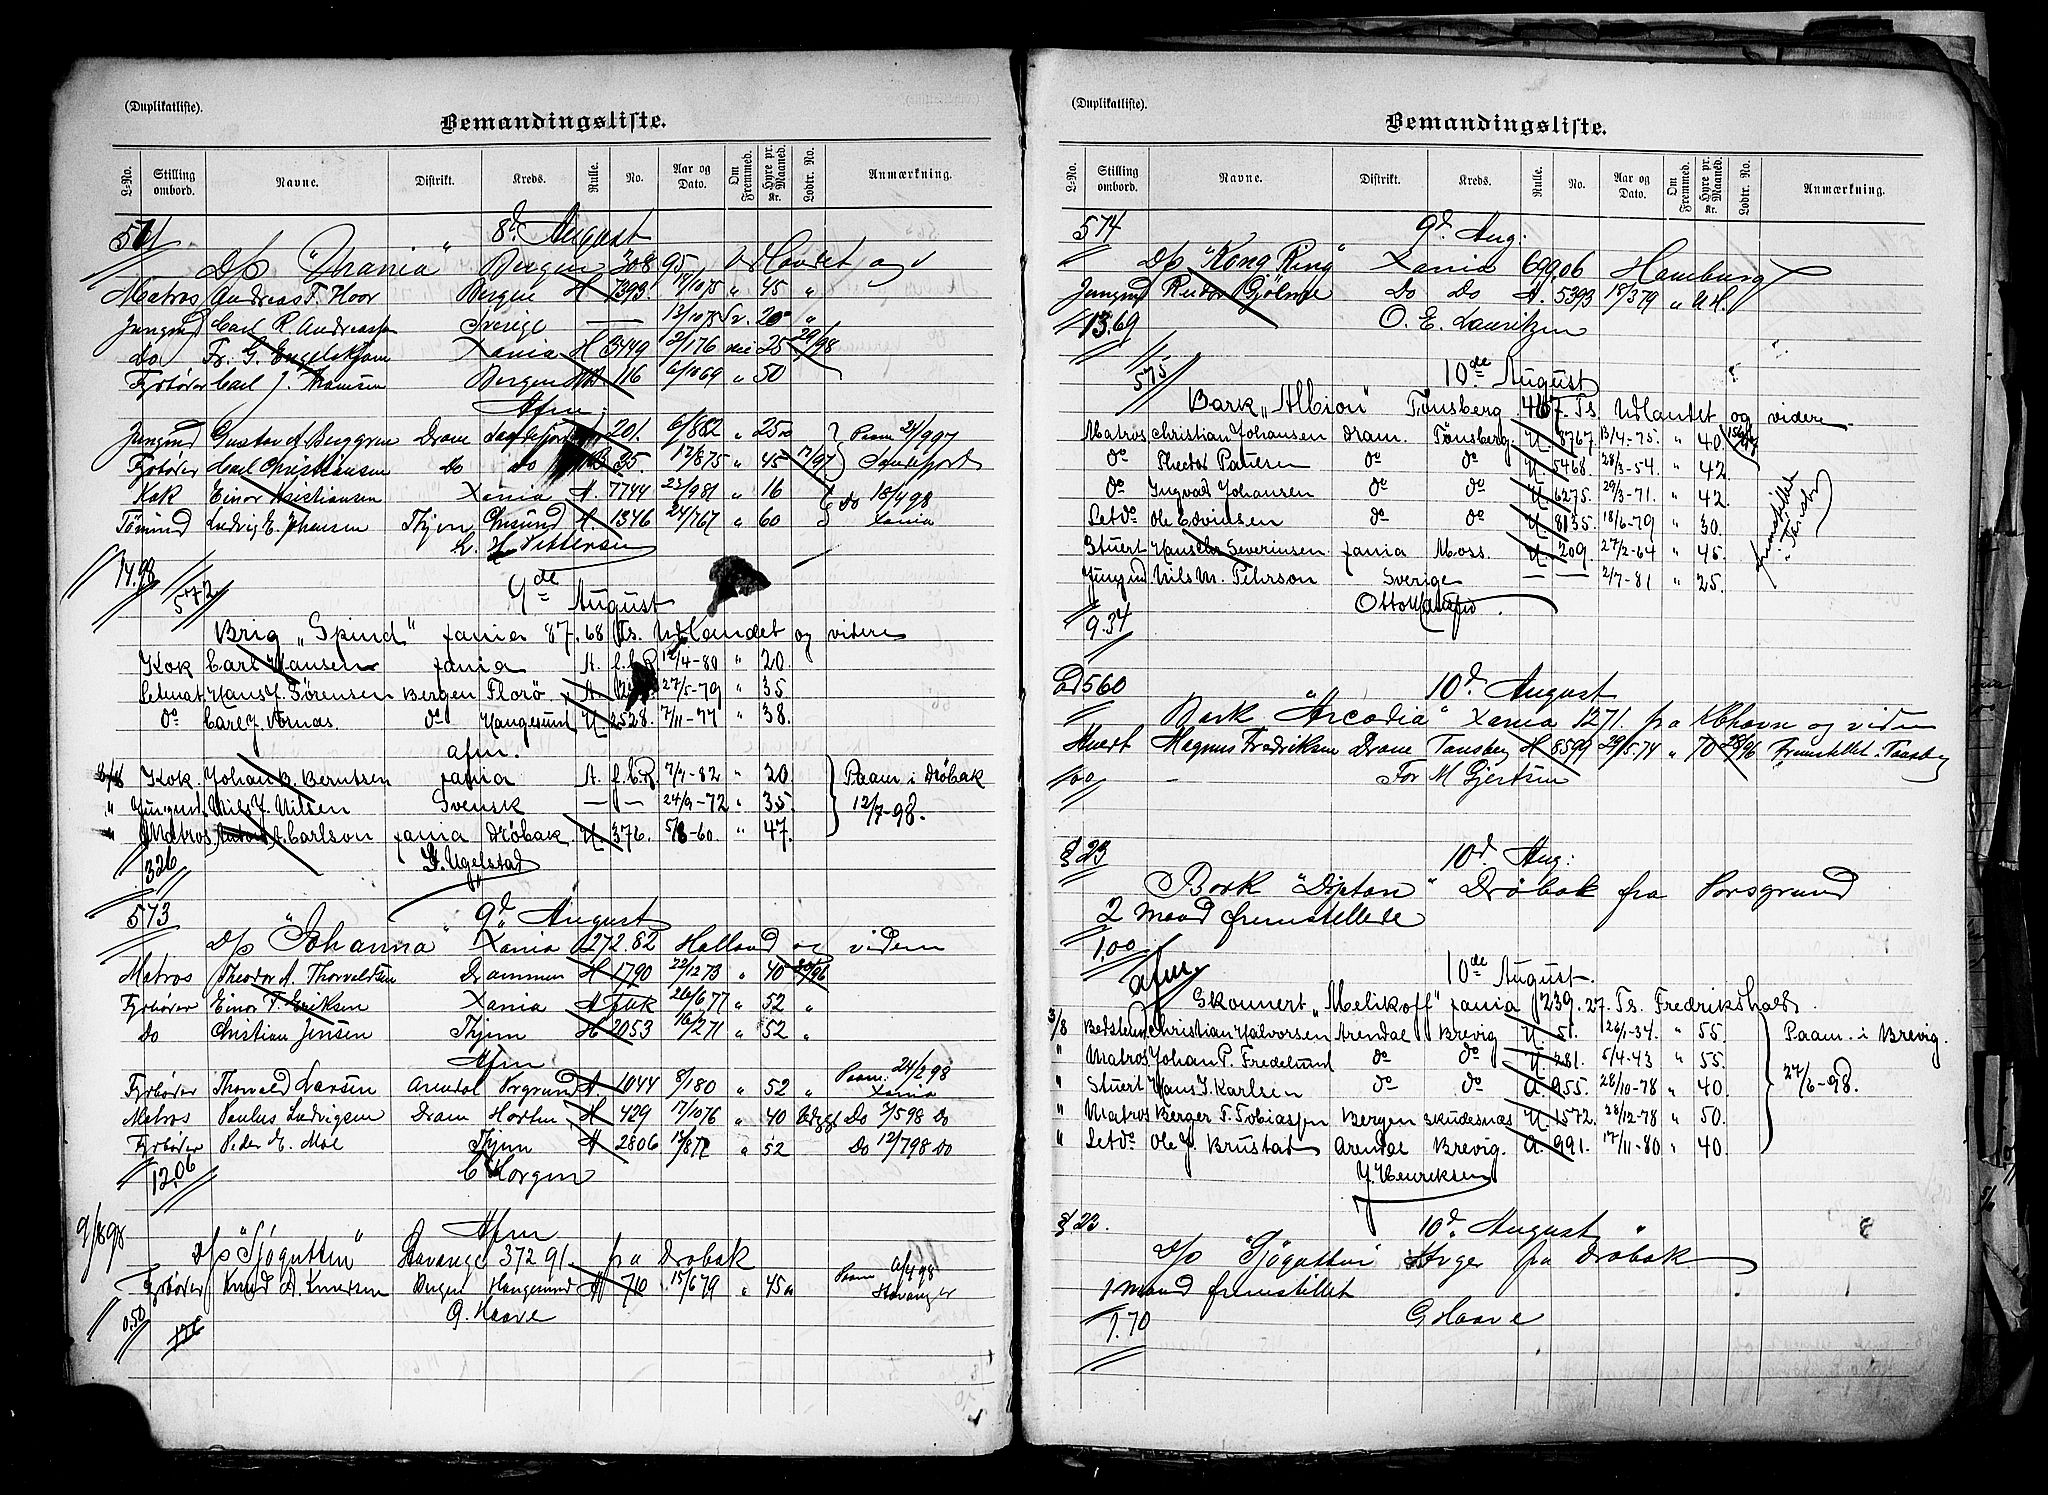 (Duplikatliste).
Bemandingsliste.
L-No. Stilling ombord. Navne. Distrikt. Kreds. Rulle. No. Aar og Dato. Om Fremmed. Hyre pr. Maaned. Kr. Lodtr. No. Anmærkning.
571 8d August
D/S "Urania" Bergen 308 95
Matros Andreas F. Hoor Bergen H 1393. 17/10 75 " 45 "
Jungmd Carl R. Andreassen Sverige — 13/10 75 Sv. 20 "
Do Fr. G. Engelskjøn Xania H 3149 2/1 76 nei 25 29/98
Fyrbøter Carl J. Bergen 116 6/10 69 " 50
Afm:
Jungmd Gustav A. Berggren Dram 201. 6/8 82 " 25 Paam 21/9 97
Fyrbøter Carl Christiansen Do Do 35. 12/8 75 " 45 17/97 Sandefjord
Kok Einar Kristiansen Xania A. 7744 23/9 81 " 16 Do 18/4 98
Tømmd Ludvig E. Johansen Thjem H 1346 24/7 67 " 60 Xania
14.98
572 9de August
Brig "Spind" Xania 87.68 Ts. Udlandet og videre
Kok Carl Hansen Xania A. f.C.R. 12/4-80 " 20.
Letmat. Hans J. Sørensen Bergen Florø A. 27/5-79 " 35
do Carl J. Aarnas. do Haugesund U 2528. 7/11-77 " 38.
afm.
6/8 Kok. Johan B. Berntsen Xania A. f.C.R 7/7-82 " 20. Paam i Drøbak
" Jungmd. Nils J. Nilsen Svensk — — 24/9-72 " 35. 12/7-98.
" Matros Carlson Xania Drøbak. U. 376. 5/8-60. " 47.
3.26
573 9d August
D/S "Johanna" Xania 272.82 Holland og videre
Matros Theodor A. Thorvaldsen Drammen H 1790 22/12 73 " 40
Fyrbøter Einar T. Eriksen Xania A Fuk 26/6 77 " 52 "
Do Christian Jensen Thjem H 2053 16/2 71 " 52 "
Afm
Fyrbøter Thorvald Larsen Arendal Prgrund A. 1044 8/1 80 " 52 Paam 24/2 98 Xania
Matros Paulus Ludvigsen Dram Horten H 429 17/10 76 " 40 Do 7/5 98 Do
Fyrbøter Peder E. Moe Thjem A 2806 13/8 77 " 52 Do 12/7 98 Do
12.06 C Horgen
9/8 98 Afm
D/S "Sjøgutten" Stavanger 372 91. fra Drøbak
Fyrbøter Knud A. Knudsen Bergen Haugesund A 710 15/6 79 " 45 Paam 6/4 98 Stavanger
0.50 G. Haave
(Duplikatliste).
Bemandingsliste.
L-No. Stilling ombord. Navne. Distrikt. Kreds. Rulle. No. Aar og Dato. Om Fremmed. Hyre pr. Maaned. Kr. Lodtr. No. Anmærkning.
574 9d Aug:
D/S "Kong Ring" Xania 699 06 Hamburg
Jungmd Do Do A. 5393 18/3 79 "
13.69 O. E. Lauritzen
575 10de August
Bark "Albion" Tønsberg 467. Ts. Udlandet og videre
Matros Christian Johansen Dram. Tønsberg. U. 8767 13/4-75. " 40
do Theodor Paulsen do do U. 5468. 28/3-54. " 42
do Ingvald Johansen do do U. 6275. 29/3-71. " 42.
Letdo Ole Edvinsen do do U. 8135. 18/6-79 " 30.
Stuert Hans Chr Severinsen Xania Moss. U. 209. 27/2-64 " 45.
Jungmd Nils M. Pehrson Sverige — — 2/7-81 " 25.
fremstillet i Tønsbg
9.34
Ad 560 10d August
Bark "Arcadia" Xania 1271. fra Kbhavn og videre
Stuert Magnus Fredriksen Dram Tønsberg H 8599 29/5.74 " 70 28/96 Fremstillet i Tønsberg
100 For M Gjertsen
§ 23 10d. Aug:
Bark Drøbak fra Porsgrund
2 Mand fremstillede
1.00
afm. 10de August
Skonnert "Melikoff" Xania 239.27. Ts. Fredrikshald.
3/8 Bedstemd Christian Halvorsen Arendal Brevig U. 51. 26/1-34. " 55 Paam. i Brevig.
" Matros Johan P. Fredelund do do U. 281. 5/4-43 " 55. 27/6-98.
" Stuert Hans I. Karlsen do do A. 955. 28/10-78 " 40.
" Matros Berger T. Tobiassen Bergen Skudesnæs U. 1572. 28/12-78 " 50.
" Letdo Ole J. Brustad Arendal Brevig. A. 991. 17/11-80 " 40.
J. Henriksen
§ 23. 10d. August
D/S "Sjøgutten" fra Drøbak
1 Mand fremstillet
1.70 G Haave